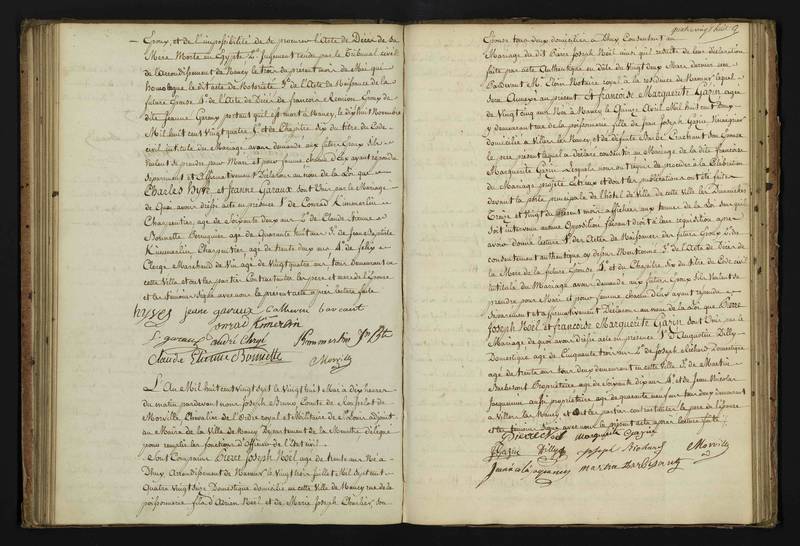 Epoux, et de l'impossibilité de se procurer l'acte de Décès de sa
Mère Morte en Egypte 2° Jugement rendu par le Tribunal civil
de l'arrondissement de Nancy le trois du présent mois de Mai qui
homologue le dit acte de Notoriété 3° de l'Acte de Naissance de la
future Epouse 4° de l'acte de Décès de francois Remion Epoux de
dite Jeanne Garaux portant qu'il est mort à Nancy, le dix huit Novembre
Mil huit cent Vingt quatre et du Chapitre Six du titre du Code
civil intitulé du Mariage, avons demandé aux futurs Epoux s'ils
Veulent se prendre pour Mari et pour femme, chacun d'Eux ayant répondu
séparément et affirmativement Déclarons au nom de la Loi que
Charles hyve et Jeanne Garaux sont Unis par le Mariage
De Quoi avons dressé acte en présence 1° de Conrad Kimmerlin
Charpentier, agé de Soixante deux ans 2° de Claude Etienne
Bonnette Perruquier, agé de Quarante huit ans 3° de Jean Baptiste
Kimmerlin Charpentier, agé de trente deux ans 4° de felix
Clerge Marchand de Vin agé de Vingt quatre ans tous Demeurant en
cette Ville et ont les parties Contractantes les pere et mere de l'Epouse
et les témoins Signé avec nous le présent acte après lecture faite
hyves jeune garaux Catherine
Conrad Kimerlin
garaux Clergé Kimmerlin
Claude Etienne Bonnette Morville
L'An Mil huit cent Vingt Sept le Vingt huit Mai à dix heures
du matin pardevant nous Joseph Comte de
Morville, Chevalier de l'Ordre royal et Militaire de St Louis, adjoint
au Maire de la Ville de Nancy Département de la Meurthe, délégué
pour remplir les fonctions d'Officier de l'Etat civil
Sont Comparus Pierre Joseph Noël, agé de trente ans Né à
Arrondissement de Namur le Vingt trois Juillet Mil Sept cent
Quatre Vingt Seize Domestique domicilié en cette Ville de Nancy rue de la
poissonnerie fils d'Adrien Noël et de Marie Joseph Charlier, son
quatre vingt huit
Epouse tous deux domiciliés à Consentant au
Mariage du dit Pierre Joseph Noël ainsi qu'il résulte de leur déclaration
faite par acte Authentique en date du Vingt deux Mars dernier
Notaire royal à la résidence de Namur lequel
sera Annexé au présent Et françoise Marguerite Gazin agée
de Vingt Cinq ans Née à Nancy le Quinze Avril Mil huit cent Deux
y demeurant rue de la poissonnerie fille de Jean Joseph Gazin
domicilié à Villers les Nancy, et de défunte Barbe son Epouse
le père présent lequel a déclaré consentir au Mariage de la dite Françoise
Marguerite Gazin. Lesquels nous ont requis de procéder à la Célébration
du Mariage projeté entr'eux et dont les publications ont été faites
devant la porte principale de l'hôtel de Ville de cette Ville les Dimanches
Treize et Vingt du présent mois affichées aux termes de la Loi sans qu'il
soit intervenu aucune Opposition faisant droit à leur réquisition après
avoir donné lecture 1° des Actes de Naissance des futurs Epoux 2° du
consentement authentique ci-dessus Mentionné 3° de l'acte de Décès de
la Mère de la future Epouse 4° et du Chapitre Six du titre du Code civil
intitulé du Mariage avons demandé aux futurs Epoux s'ils Veulent se
prendre pour Mari et pour femme chacun d'Eux ayant répondu
Séparément et affirmativement Déclarons au nom de la Loi que Pierre
Joseph Noël et françoise Marguerite Gazin sont Unis par le
Mariage de quoi avons dressé acte en présence 1° d'Augustin Dilly
Domestique agé de Cinquante trois ans 2° de Joseph Domestique
agé de trente ans tous deux demeurant en cette Ville 3° de Martin
Propriétaire agé de Soixante dix ans 4° et Jean Nicolas
Jacquemin aussi propriétaire agé de quarante neuf ans tous deux demeurant
à Villers les Nancy et Ont les parties contractantes le père de l'épouse
et les témoins Signé avec nous le présent acte après lecture faite
Pierre Noël marguerite Gazin
Gazin Dilly Joseph Morville
martin